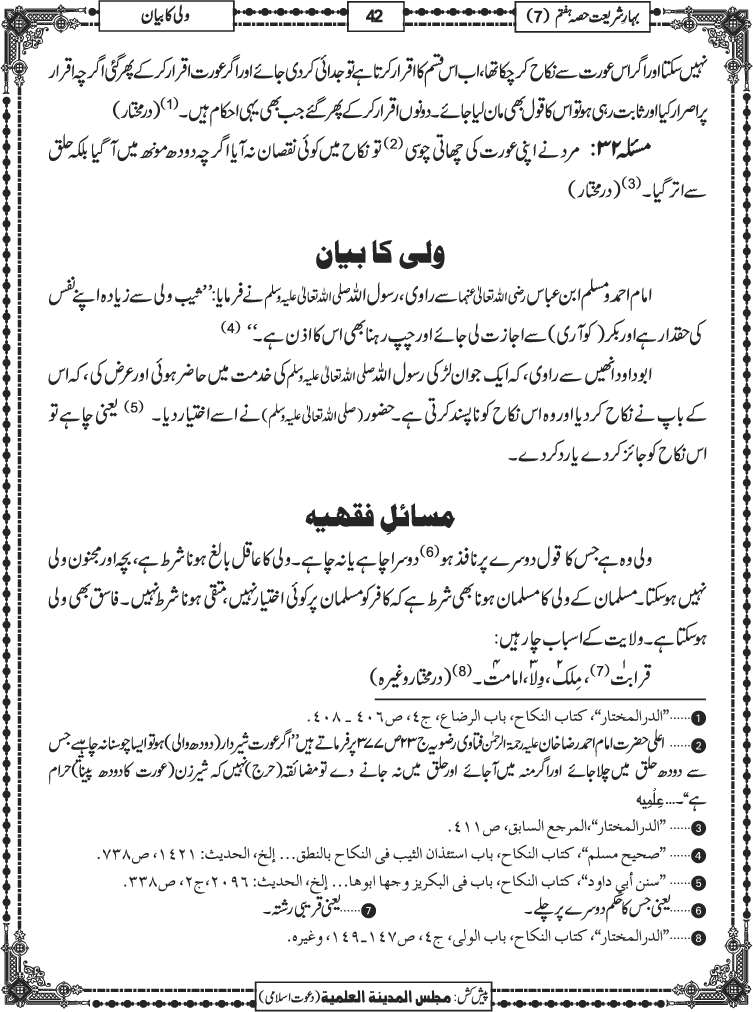 بہارِ شریعت حصہ ہفتم (7)
42
ولی کا بیان
نہیں سکتا اور اگر اس عورت سے نکاح کر چکا تھا، اب اس قسم کا اقرار کرتا ہے تو جدائی کر دی جائے اور اگر عورت اقرار کر کے پھر گئی اگرچہ اقرار
پر اصرار کیا اور ثابت رہی ہو تو اس کا قول بھی مان لیا جائے۔ دونوں اقرار کر کے پھر گئے جب بھی یہی احکام ہیں۔(1) (درمختار)
مسئلہ ۳۲: مرد نے اپنی عورت کی چھاتی چوسی (2) تو نکاح میں کوئی نقصان نہ آیا اگرچہ دودھ مونھ میں آ گیا بلکہ حلق
سے اتر گیا۔(3) (درمختار)
ولی کا بیان
امام احمد و مسلم ابن عباس رضی اللہ تعالیٰ عنہما سے راوی، رسول اللہ صلی اللہ تعالیٰ علیہ وسلم نے فرمایا: ’’ثیب ولی سے زیادہ اپنے نفس
کی حقدار ہے اور بکر (کوآری) سے اجازت لی جائے اور چپ رہنا بھی اس کا اذن ہے۔‘‘ (4)
ابو داود انھیں سے راوی، کہ ایک جوان لڑکی رسول اللہ صلی اللہ تعالیٰ علیہ وسلم کی خدمت میں حاضر ہوئی اور عرض کی، کہ اس
کے باپ نے نکاح کر دیا اور وہ اس نکاح کو ناپسند کرتی ہے۔ حضور (صلی اللہ تعالیٰ علیہ وسلم) نے اسے اختیار دیا۔ (5) یعنی چاہے تو
اس نکاح کو جائز کر دے یا رد کر دے۔
مسائلِ فقہیہ
ولی وہ ہے جس کا قول دوسرے پر نافذ ہو (6) دوسرا چاہے یا نہ چاہے۔ ولی کا عاقل بالغ ہونا شرط ہے، بچہ اور مجنون ولی
نہیں ہو سکتا۔ مسلمان کے ولی کا مسلمان ہونا بھی شرط ہے کہ کافر کو مسلمان پر کوئی اختیار نہیں، متقی ہونا شرط نہیں۔ فاسق بھی ولی
ہو سکتا ہے۔ ولایت کے اسباب چار ہیں:
قرابت۱ (7)، مِلک۲، وِلا۳، امامت۴۔ (8) (درمختار وغیرہ)
1 ......’’الدرالمختار‘‘، کتاب النکاح، باب الرضاع، ج٤، ص٤٠٦ ـ ٤٠٨.
2 ...... اعلیٰ حضرت امام احمد رضا خان علیہ رحمۃ الرحمٰن فتاوی رضویہ ج ۲۳ ص ۳۷۷ پر فرماتے ہیں ’’اگر عورت شیردار (دودھ والی) ہو تو ایسا چوسنا نہ چاہیے جس
سے دودھ حلق میں چلا جائے اور اگر منہ میں آ جائے اور حلق میں نہ جانے دے تو مضائقہ (حرج) نہیں کہ شیر زن (عورت کا دودھ پینا) حرام
ہے‘‘۔... عِلْمِیه
3 ......’’الدرالمختار‘‘، المرجع السابق، ص٤١١.
4 ......’’صحیح مسلم‘‘، کتاب النکاح، باب استئذان الثیب فی النکاح بالنطق... إلخ، الحدیث: ١٤٢١، ص٧٣٨.
5 ......’’سنن أبی داود‘‘، کتاب النکاح، باب فی البکریز وجها ابوها... إلخ، الحدیث: ٢٠٩٦، ج٢، ص٣٣٨.
6 ......یعنی جس کا حکم دوسرے پر چلے۔ 7 ......یعنی قریبی رشتہ۔
8 ......’’الدرالمختار‘‘، کتاب النکاح، باب الولی، ج٤، ص١٤٧ـ١٤٩، وغیرہ.
پیش کش: مجلس المدینة العلمیة (دعوت اسلامی)